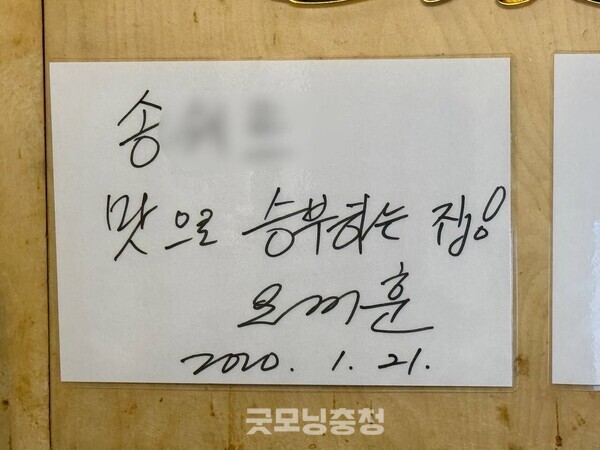 송
맛으로 승부하는 집!
오세훈
2020. 1. 21.
굿모닝충청